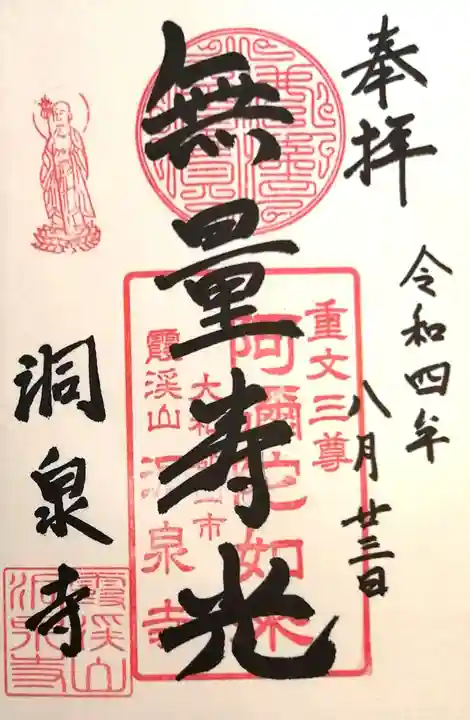 奉拝
令和四年
八月廿三日
無量寿光
洞泉寺
重文三尊
阿彌陀如来
大和郡山市
霞溪山洞泉寺
霞溪山
洞泉寺